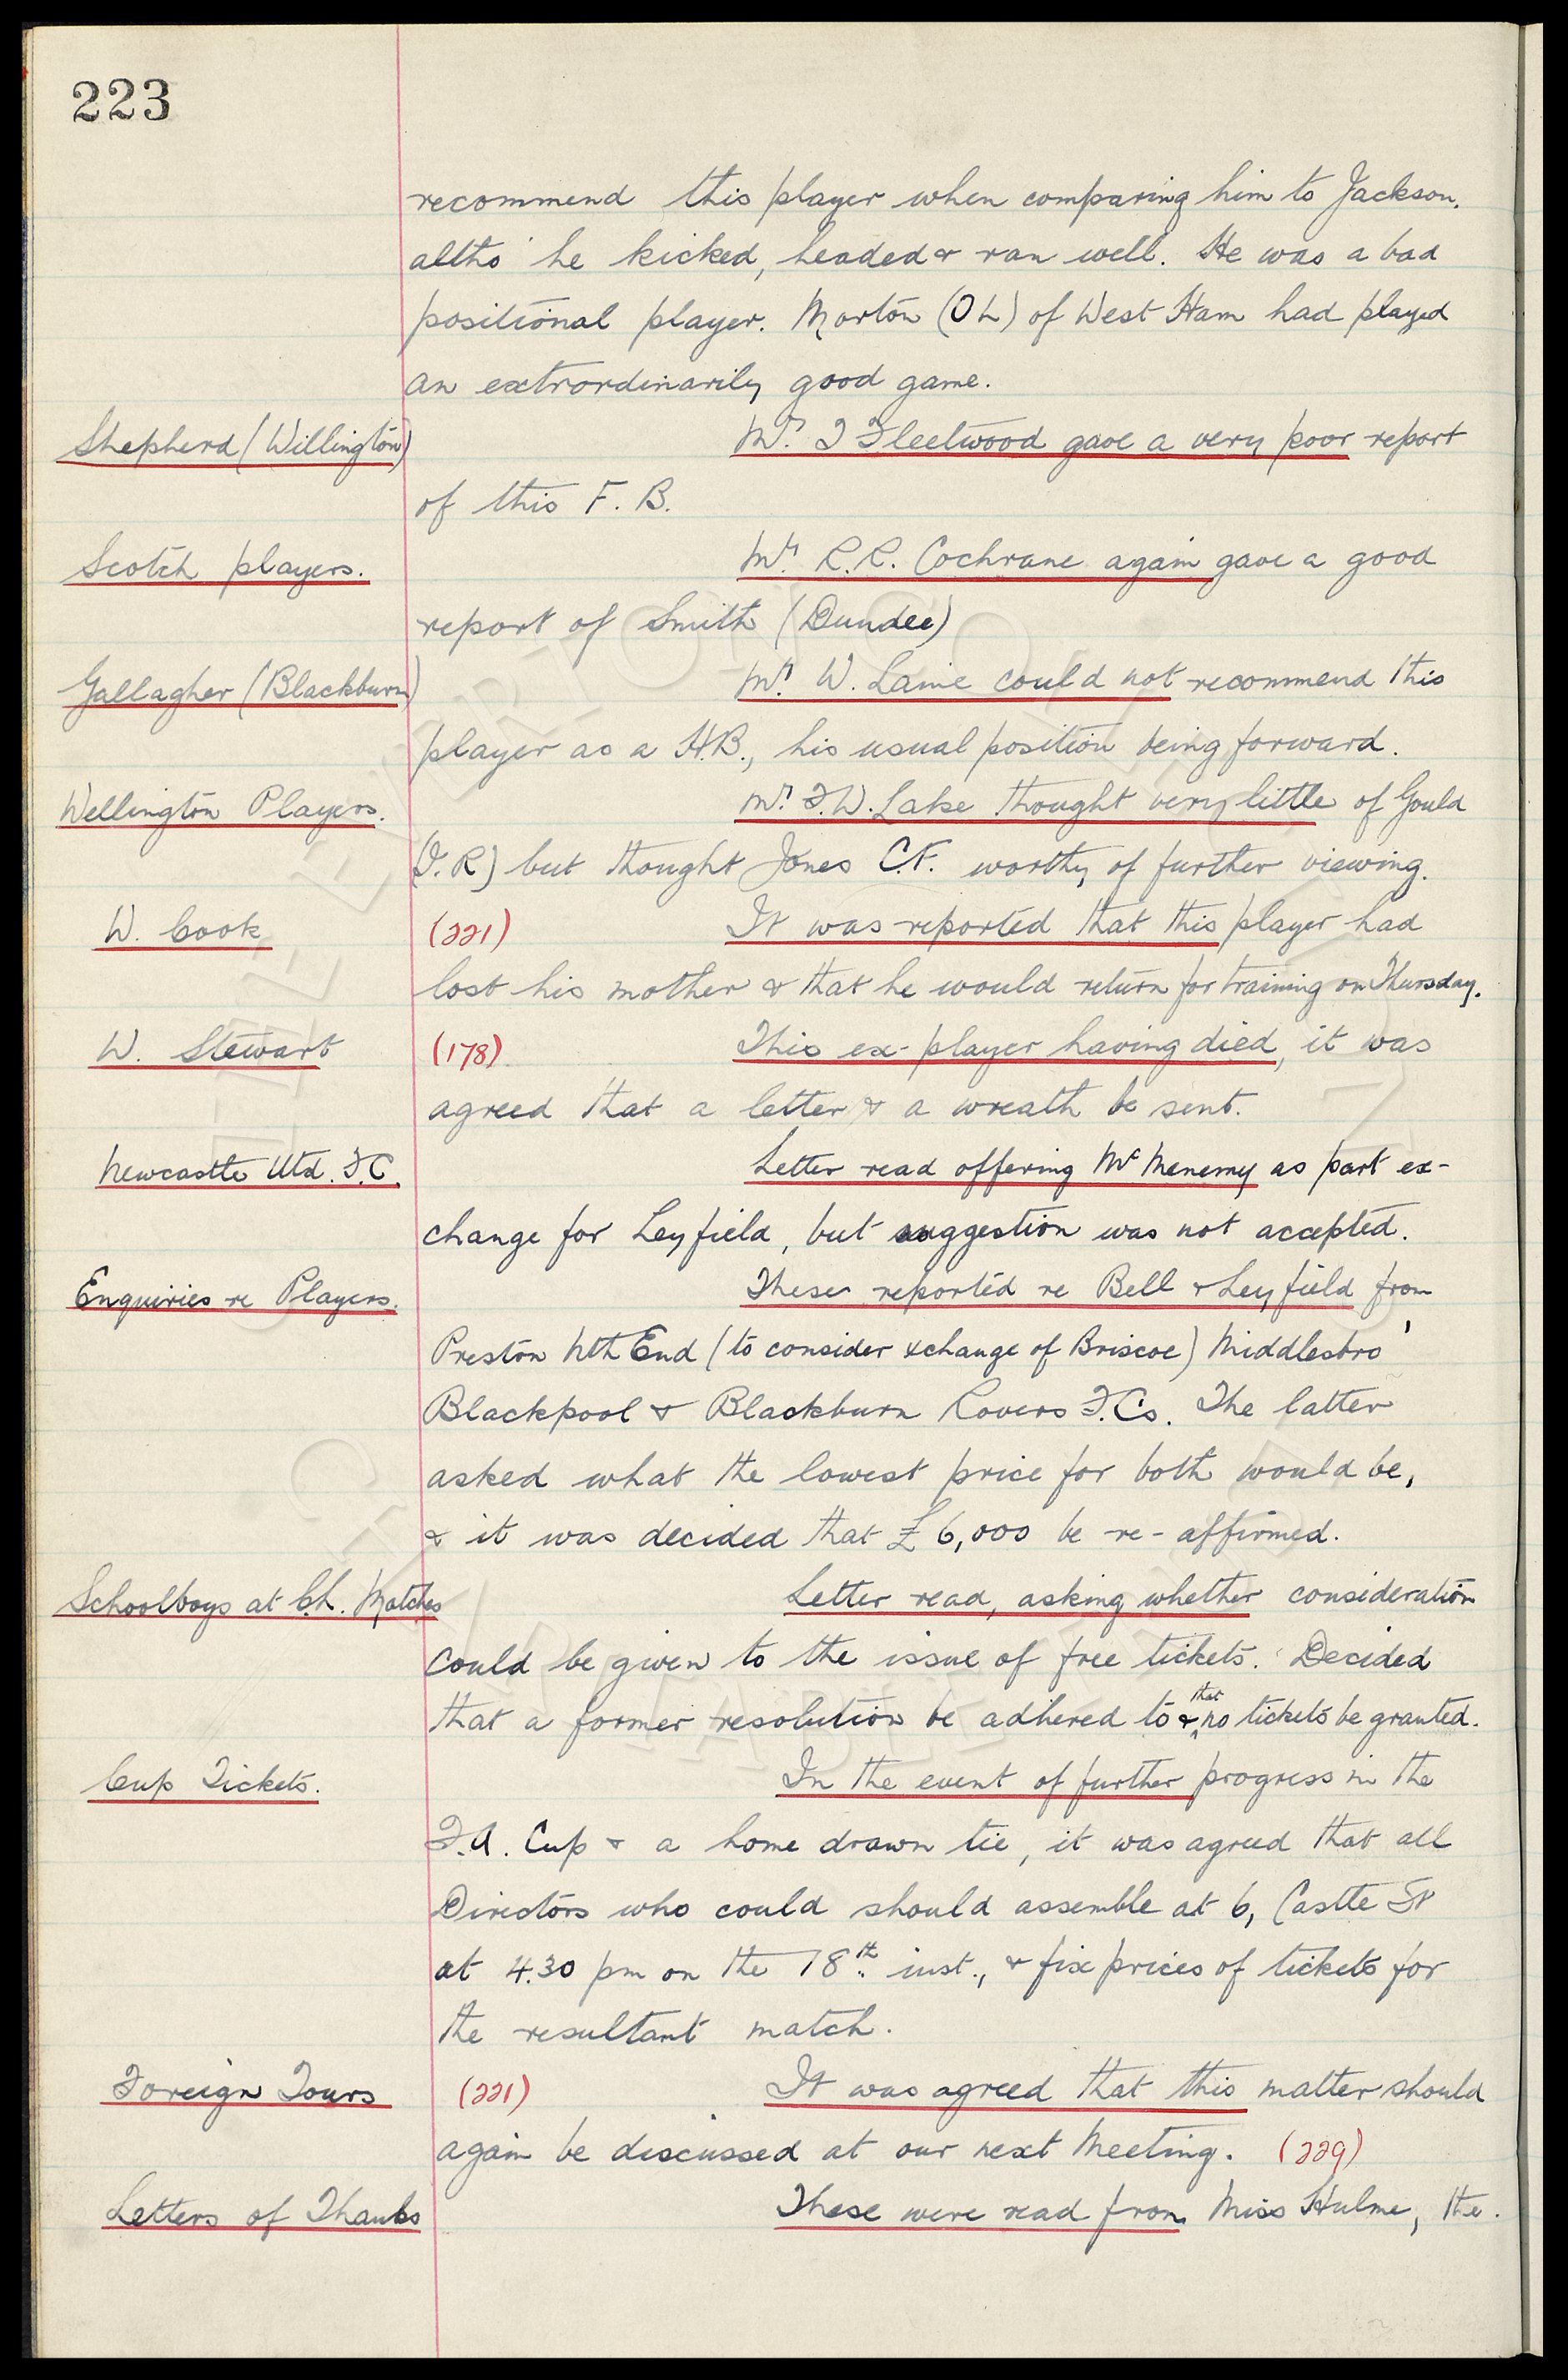 223
recommend this player when comparing him to Jackson,
altho' he kicked, headed & ran well. He was a bad
positional player. Morton (O L) of West Ham had played
an extrordinarily good game.
Shepherd (Willington) Mr. T Fleetwood gave a very poor report
of this F. B.
Scotch players. Mr. R.R. Cochrane again gave a good
report of Smith (Dundee)
Gallagher (Blackburn) Mr. W. Laine could not recommend this
player as a H.B., his usual position being forward.
Wellington Players. Mr. F.W. Lake thought very little of Gould
(I.R) but thought Jones C.F. worthy of further viewing.
W. Cook (221) It was reported that this player had
lost his mother & that he would return for training on Thursday.
W. Stewart (178) This ex-player having died, it was
agreed that a letter & a wreath be sent.
Newcastle Utd. F.C. Letter read offering Mc Menemy as part ex-
change for Leyfield, but suggestion was not accepted.
Enquiries re Players. These reported re Bell & Leyfield from
Preston Nth End (to consider xchange of Briscoe) Middlesbro'
Blackpool & Blackburn Rovers F.Cs. The latter
asked what the lowest price for both would be,
& it was decided that £6,000 be re-affirmed.
Schoolboys at Ch. Matches Letter read, asking whether consideration
could be given to the issue of free tickets. Decided
that a former resolution be adhered to & that no tickets be granted.
Cup Tickets. In the event of further progress in the
F.A. Cup & a home drawn tie, it was agreed that all
Directors who could should assemble at 6, Castle St
at 4.30 pm on the 18th. inst., & fix prices of tickets for
the resultant match.
Foreign Tours (221) It was agreed that this matter should
again be discussed at our next Meeting. (229)
Letters of Thanks These were read from Miss Hulme, the